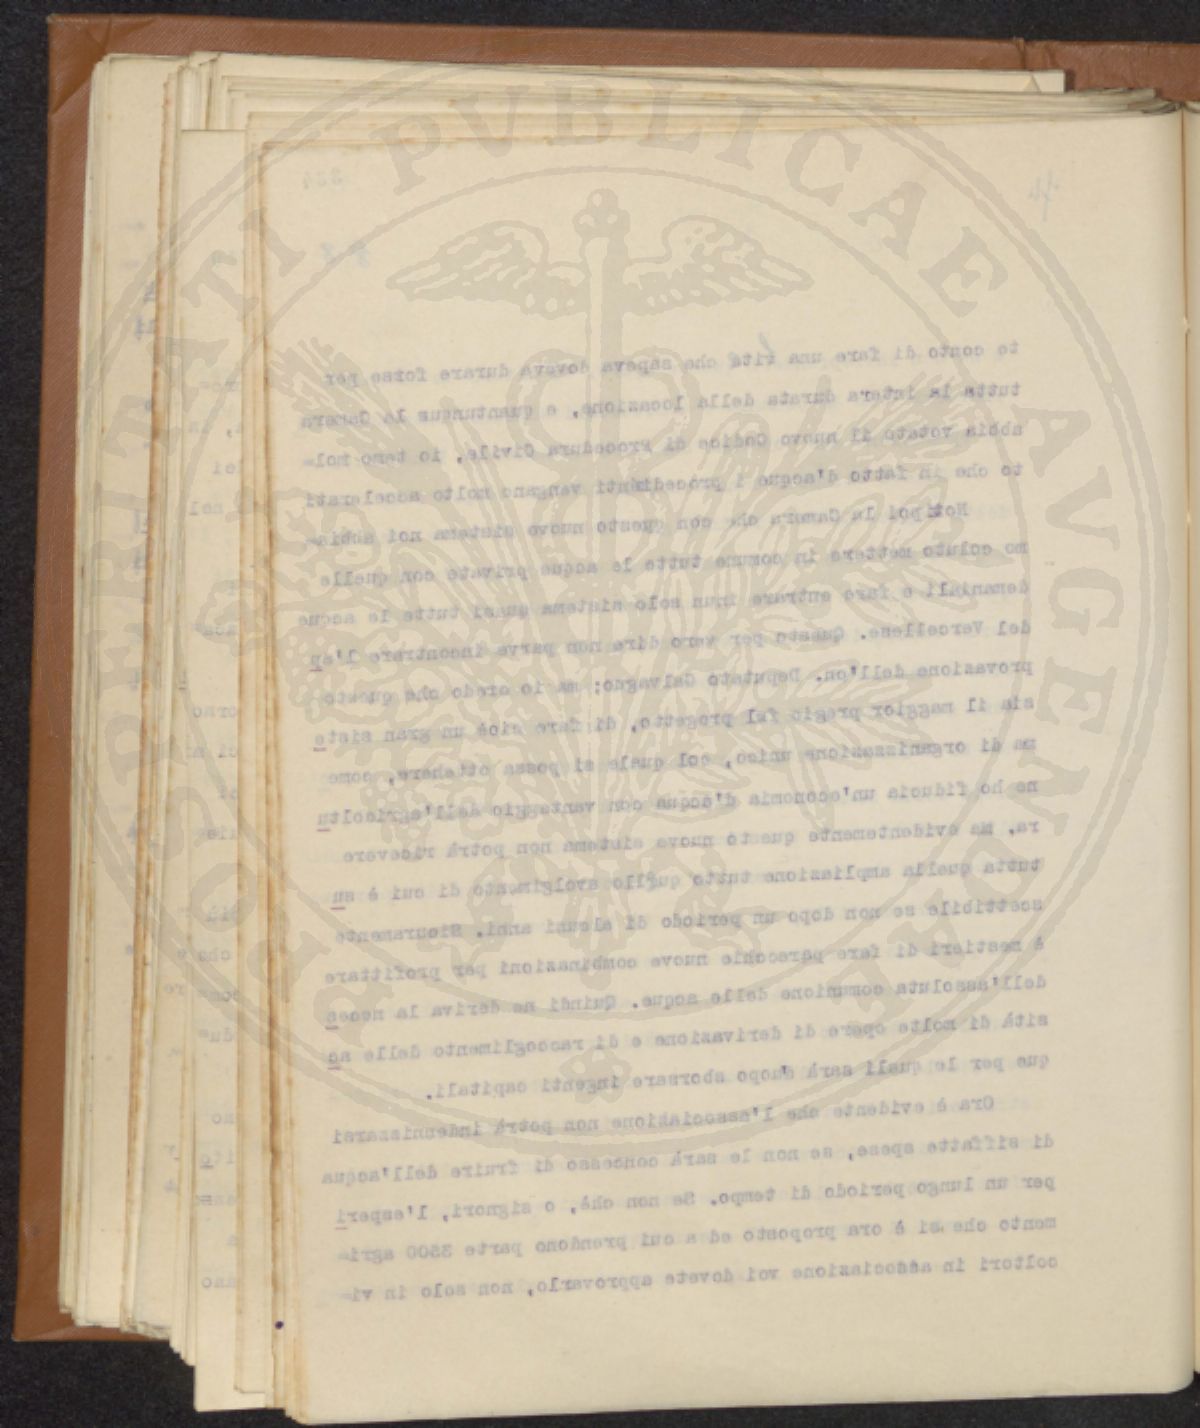 324
44
to conto di fare una lite che sapeva doveva durare forse per
tutta la intera durata della locazione, e quantunque la Camera
abbia votato il nuovo Codice di Procedura Civile, io temo mol=
to che in fatto d'acque i procedimenti vengano molto accelerati
Noti poi la Camera che con questo nuovo sistema noi abbia=
mo coluto mettere in comune tutte le acque private con quelle
demaniali e fare entrare inun solo sistema quasi tutte le acque
del Vercellese. Questo per vero dire non parve incontrare l'ap
provazione dell'on. Deputato Galvagno; ma io credo che questo
sia il maggior pregio fal progetto, di fare cioè un gran siste
ma di organizzazione unico, col quale si possa ottehere, come
ne ho fiducia un'economia d'acqua con vantaggio dell'agricoltu
ra, Ma evidentemente questo nuovo sistema non potrà ricevere
tutta quella ampliazione tutto quello svolgimento di cui è su
scettibile se non dopo un periodo di alcuni anni. Sicuramente
è mestieri di fare parecchie nuove combinazioni per profittare
dell'assoluta comunione delle acque. Quindi ne deriva la neces
sità di molte opere di derivazione e di raccoglimento delle ac
que per le quali sarà duopo sborsare ingenti capitali.
Ora è evidente che l'associazione non potrà indennizzarsi
di siffatte spese, se non le sarà concesso di fruire dell'acqua
per un lungo periodo di tempo. Se non chè, o signori, l'esperi
mento che si è ora proposto ed a cui prendono parte 3500 agri=
coltori in associazione voi dovete approvarlo, non solo in vi=
PROSPERITATI PUBLICAE AVGENDAE